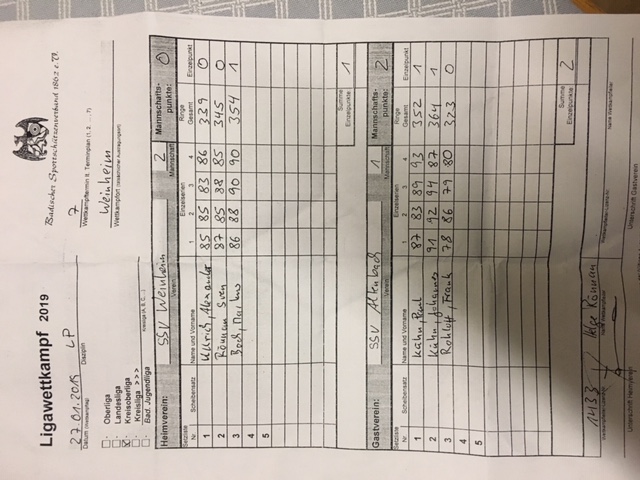 Badischer Sportschützenverband 1862 e. V.
Ligawettkampf 2019
27.01.2019 LP 7 Weinheim
Datum Disziplin Wettkampftermin lt. Terminplan (1, 2, ... 7) Wettkampfort
Oberliga
Landesliga
Kreisoberliga
Kreisliga >>>
Bad. Jugendliga
Heimverein: SSV Weinheim 2 Mannschaftspunkte: 0
Verein Mannschaft
Setzliste Nr. Scheibensatz Name und Vorname Einzelserien 1 2 3 4 Ringe Gesamt Einzelpunkt
1 Ullrich, Alexander 85 85 83 86 339 0
2 Rönnau Sven 87 85 88 85 345 0
3 86 88 90 90 354 1
4
5
Summe Einzelpunkte: 1
Gastverein: SSV Altenbach 1 Mannschaftspunkte: 2
Verein Mannschaft
Setzliste Nr. Scheibensatz Name und Vorname Einzelserien 1 2 3 4 Ringe Gesamt Einzelpunkt
1 87 83 89 93 352 1
2 Kühn, Johannes 91 92 94 87 364 1
3 Rohloff, Frank 78 86 79 80 323 0
4
5
Summe Einzelpunkte: 2
1433 Rönnau
Unterschrift Heimverein Unterschrift Gastverein